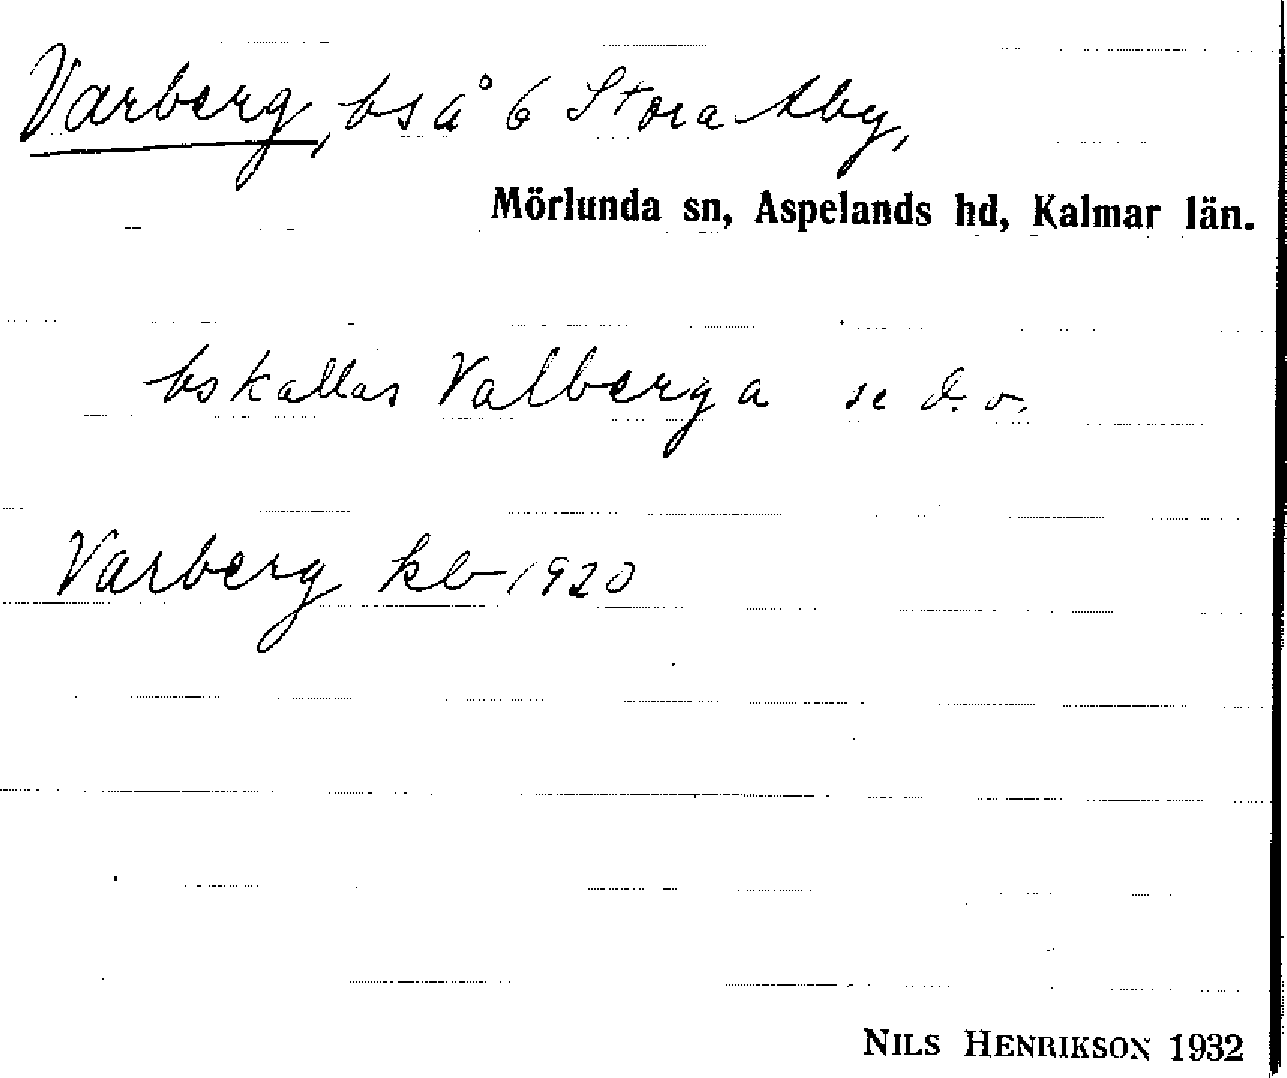 Varberg, bs å 6 Stora Åby,
Mörlunda sn, Aspelands hd, Kalmar län.
bs kallas Valberga se d. o.
Varberg kb 1920
NILS HENRIKSON 1932